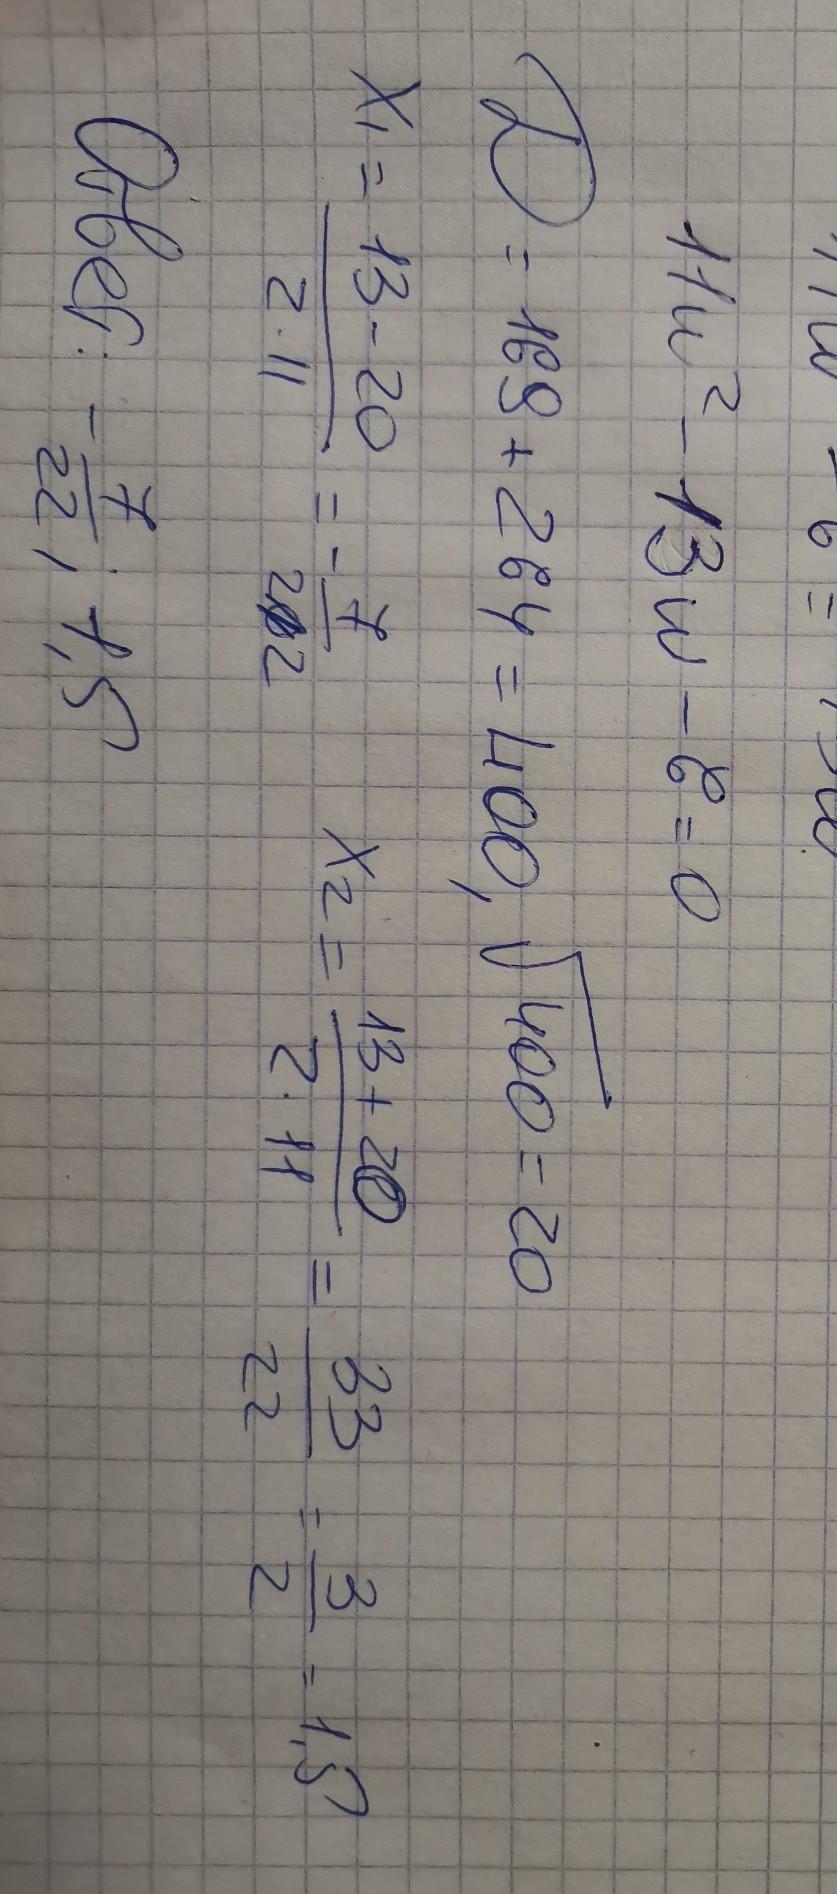 11w² - 13w - 6 = 0
D = 169 + 264 = 400, √400 = 20
x₁ = (13 - 20)/(2·11) = -7/22 x₂ = (13 + 20)/(2·11) = 33/22 = 3/2 = 1,5
Ответ: -7/22; 1,5